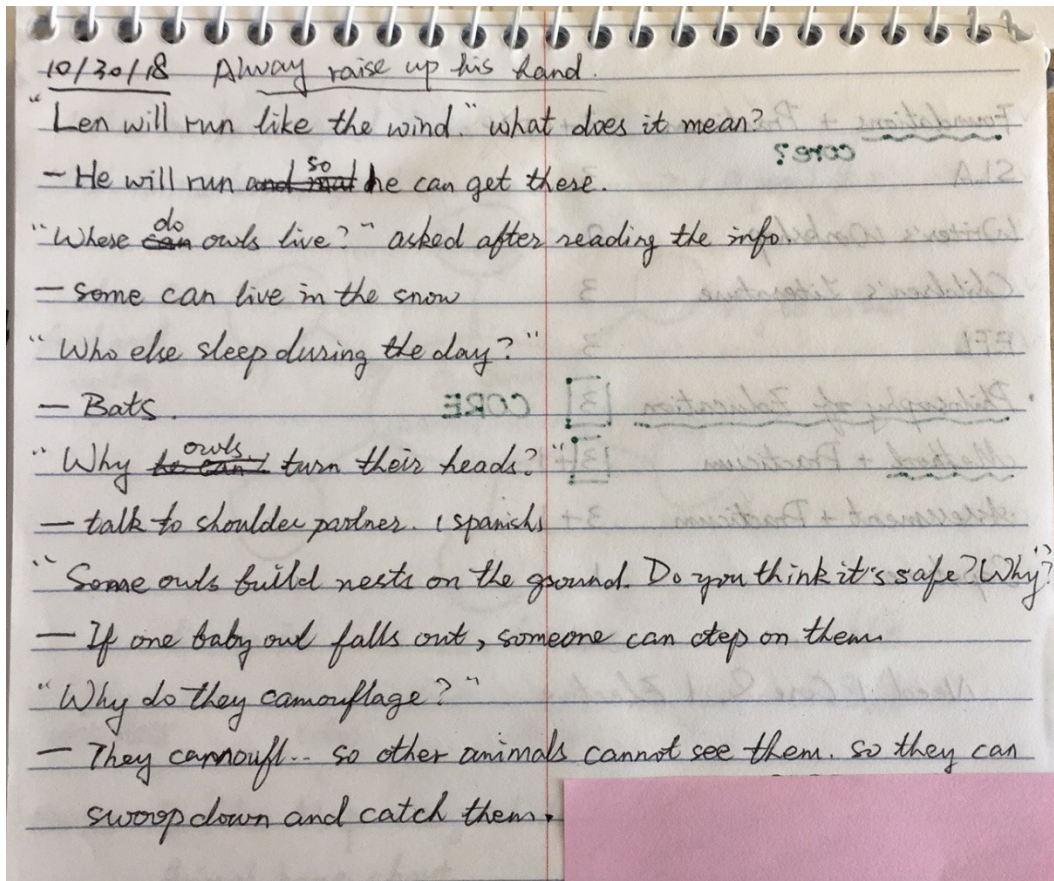 10/30/18 Alway raise up his hand.
"Len will run like the wind." what does it mean?
- He will run so he can get there.
"Where do owls live?" asked after reading the info.
- Some can live in the snow
"Who else sleep during the day?"
- Bats.
"Why owls turn their heads?"
- talk to shoulder partner. (spanish)
"Some owls build nests on the ground. Do you think it's safe? Why?"
- If one baby owl falls out, someone can step on them
"Why do they camouflage?"
- They camoufl.. so other animals cannot see them. so they can
swoop down and catch them.